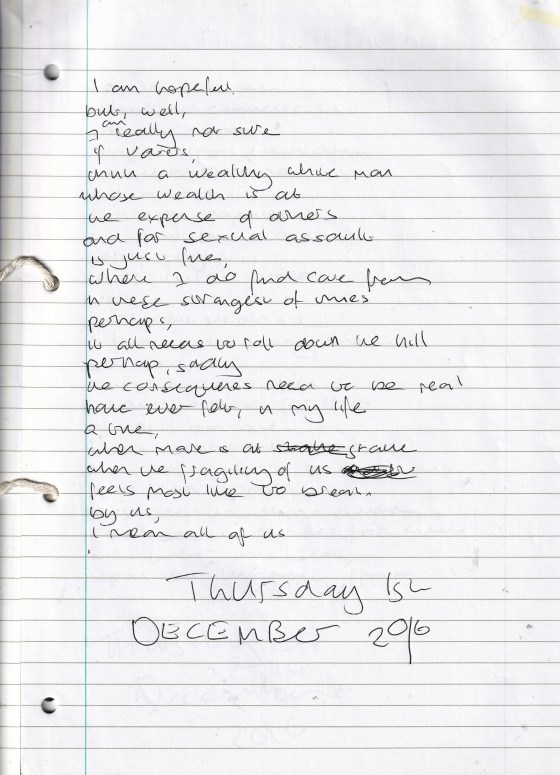 I am hopeful.
but, well,
I am really not sure
if voters,
think a wealthy white man
whose wealth is at
the expense of others
and for sexual assault
is just fine,
where I do find
in these strangest of times
perhaps,
it all needs to roll down the hill
perhap, sadly
the consequences need to be real
have ever felt, in my life
a time,
when more is at stake
when the fragility of us
feels most like to break.
by us,
I mean all of us
.
Thursday 1st
DECEMBER 2016